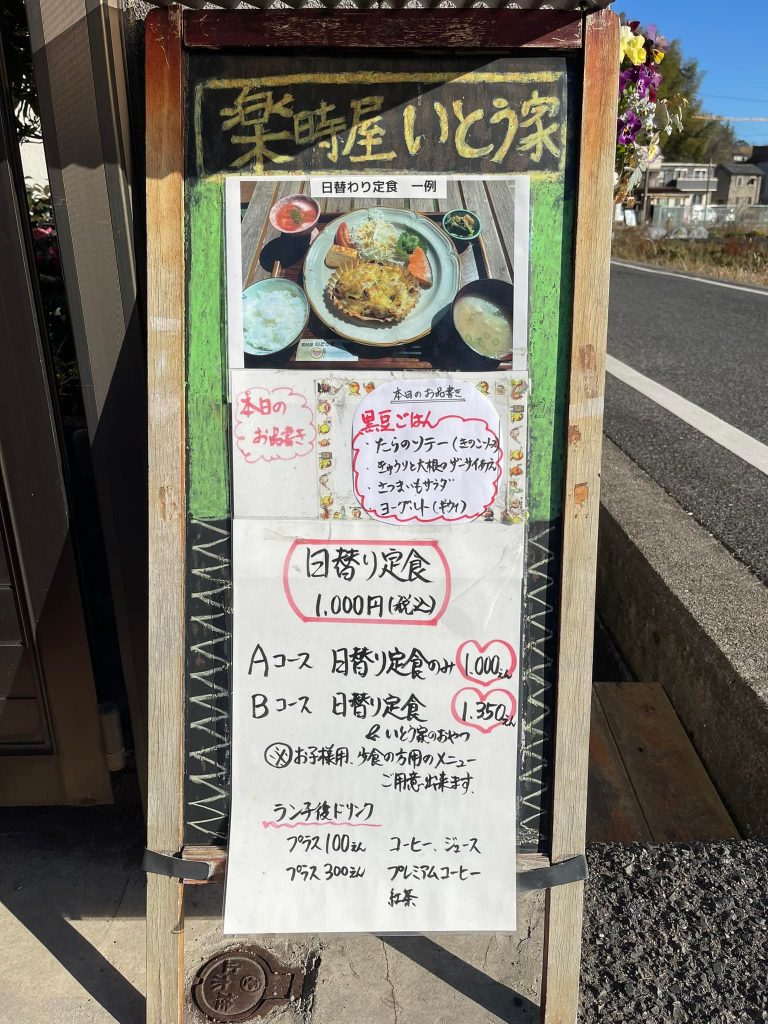 楽時屋 いとう家
日替わり定食 一例
本日の
お品書き
本日のお品書き
黒豆ごはん
・たらのソテー(きのこソース)
・きゅうりと大根のザーサイ和え
・さつまいもサラダ
・ヨーグルト(キウイ)
日替り定食
1,000円(税込)
Aコース 日替り定食のみ 1.000えん
Bコース 日替り定食 1.350えん
& いとう家のおやつ
※お子様用、少食の方用のメニュー
ご用意出来ます。
ランチ後ドリンク
プラス100えん コーヒー、ジュース
プラス300えん プレミアムコーヒー
紅茶